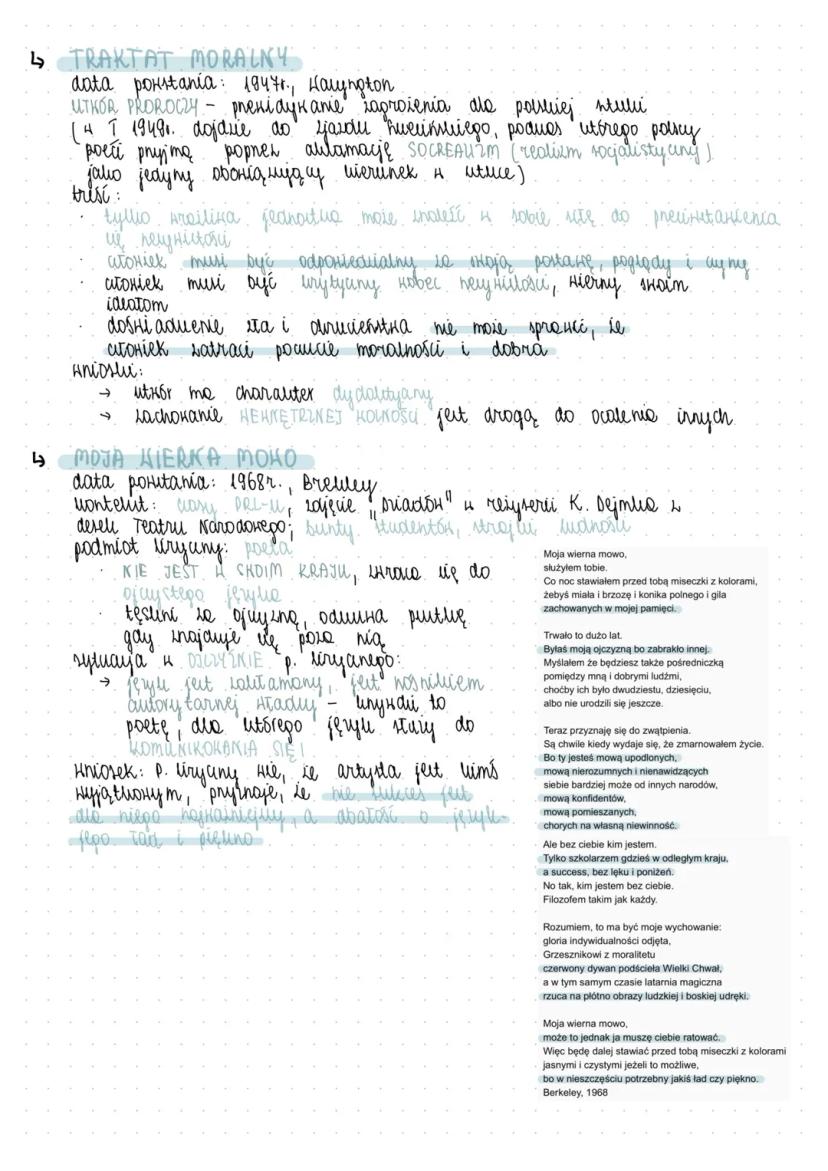 ↳ TRAKTAT MORALNY
data powstania: 1947r., Waszyngton
UTWÓR PROROCZY - przewidywanie zagrożenia dla polskiej sztuki
(w I 1949r. dojdzie do zjazdu szczecińskiego, podczas którego polscy
poeci przyjmą poprzez aklamację SOCREALIZM (realizm socjalistyczny)
jako jedyny obowiązujący kierunek w sztuce)
treść:
· tylko wrażliwa jednostka może znaleźć w sobie siłę do przeciwstawienia
się rzeczywistości
· człowiek musi być odpowiedzialny za swoją postawę, poglądy i czyny
· człowiek musi być krytyczny wobec rzeczywistości, wierny swoim
ideałom
· doświadczenie zła i okrucieństwa nie może sprawić, że
człowiek zatraci poczucie moralności i dobra
wnioski:
→ utwór ma charakter dydaktyczny
→ zachowanie WEWNĘTRZNEJ WOLNOŚCI jest drogą do ocalenia innych
↳ MOJA WIERNA MOWO
data powstania: 1968r., Berkeley
kontekst: czasy PRL-u, zdjęcie "Dziadów" w reżyserii K. Dejmka z
desek Teatru Narodowego; bunty studentów, strajki ludności
podmiot liryczny: poeta
· NIE JEST W SWOIM KRAJU, zwraca się do
ojczystego języka
· tęskni za ojczyzną, odczuwa pustkę
gdy znajduje się poza nią
sytuacja w OJCZYŹNIE p. lirycznego:
→ język jest zakłamany, jest nośnikiem
autorytarnej władzy - krzywdzi to
poetę, dla którego język służy do
KOMUNIKOWANIA SIĘ!
wniosek: p. liryczny wie, że artysta jest kimś
wyjątkowym, przyznaje, że nie sukces jest
dla niego najważniejszy, a dbałość o język-
jego ład i piękno
Moja wierna mowo,
służyłem tobie.
Co noc stawiałem przed tobą miseczki z kolorami,
żebyś miała i brzozę i konika polnego i gila
zachowanych w mojej pamięci.
Trwało to dużo lat.
Byłaś moją ojczyzną bo zabrakło innej.
Myślałem że będziesz także pośredniczką
pomiędzy mną i dobrymi ludźmi,
choćby ich było dwudziestu, dziesięciu,
albo nie urodzili się jeszcze.
Teraz przyznaję się do zwątpienia.
Są chwile kiedy wydaje się, że zmarnowałem życie.
Bo ty jesteś mową upodlonych,
mową nierozumnych i nienawidzących
siebie bardziej może od innych narodów,
mową konfidentów,
mową pomieszanych,
chorych na własną niewinność.
Ale bez ciebie kim jestem.
Tylko szkolarzem gdzieś w odległym kraju,
a success, bez lęku i poniżeń.
No tak, kim jestem bez ciebie.
Filozofem takim jak każdy.
Rozumiem, to ma być moje wychowanie:
gloria indywidualności odjęta,
Grzesznikowi z moralitetu
czerwony dywan podściela Wielki Chwał,
a w tym samym czasie latarnia magiczna
rzuca na płótno obrazy ludzkiej i boskiej udręki.
Moja wierna mowo,
może to jednak ja muszę ciebie ratować.
Więc będę dalej stawiać przed tobą miseczki z kolorami
jasnymi i czystymi jeżeli to możliwe,
bo w nieszczęściu potrzebny jakiś ład czy piękno.
Berkeley, 1968